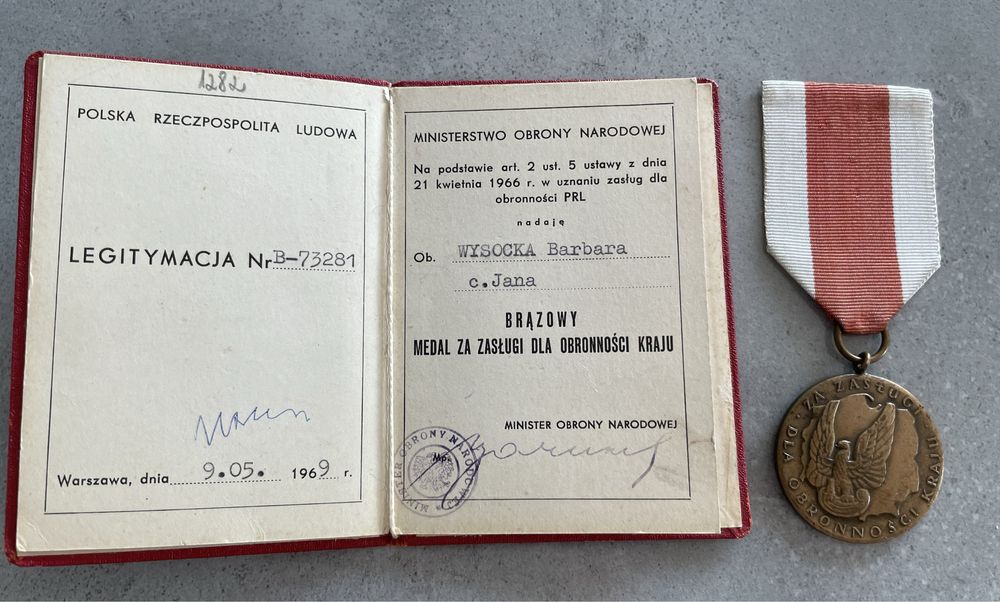 1282
POLSKA RZECZPOSPOLITA LUDOWA
LEGITYMACJA Nr B-73281
Warszawa, dnia 9.05. 1969 r.
MINISTERSTWO OBRONY NARODOWEJ
Na podstawie art. 2 ust. 5 ustawy z dnia
21 kwietnia 1966 r. w uznaniu zasług dla
obronności PRL
nadaję
Ob. WYSOCKA Barbara
c.Jana
BRĄZOWY
MEDAL ZA ZASŁUGI DLA OBRONNOŚCI KRAJU
MINISTER OBRONY NARODOWEJ
Mp.
MINISTER OBRONY NARODOWEJ
ZA ZASŁUGI DLA OBRONNOŚCI KRAJU